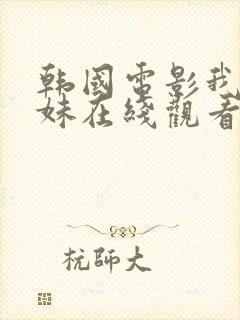 韩國電影我
妹在綫觀看
杭師大